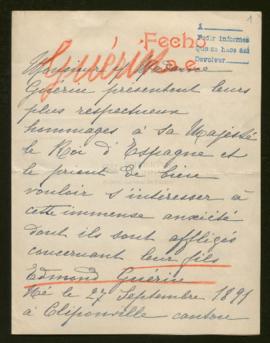 1
A
Pedir informes
que se hace así
Devolver
Fecho
Guérin
Monsieur et Madame
Guérin présentent leurs
plus respectueux
hommages à sa Majesté
le Roi d'Espagne et
le prient de bien
vouloir s'intéresser à
cette immense anxiété
dont ils sont affligés
concernant leur fils
Edmond Guérin
Né le 27 Septembre 1891
à Cliponville canton